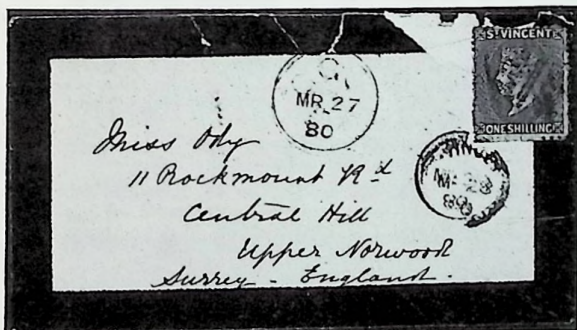 ST VINCENT
ONE SHILLING
MR 27
80
Miss Ody
11 Rockmount Rd
Central Hill
Upper Norwood
Surrey - England.